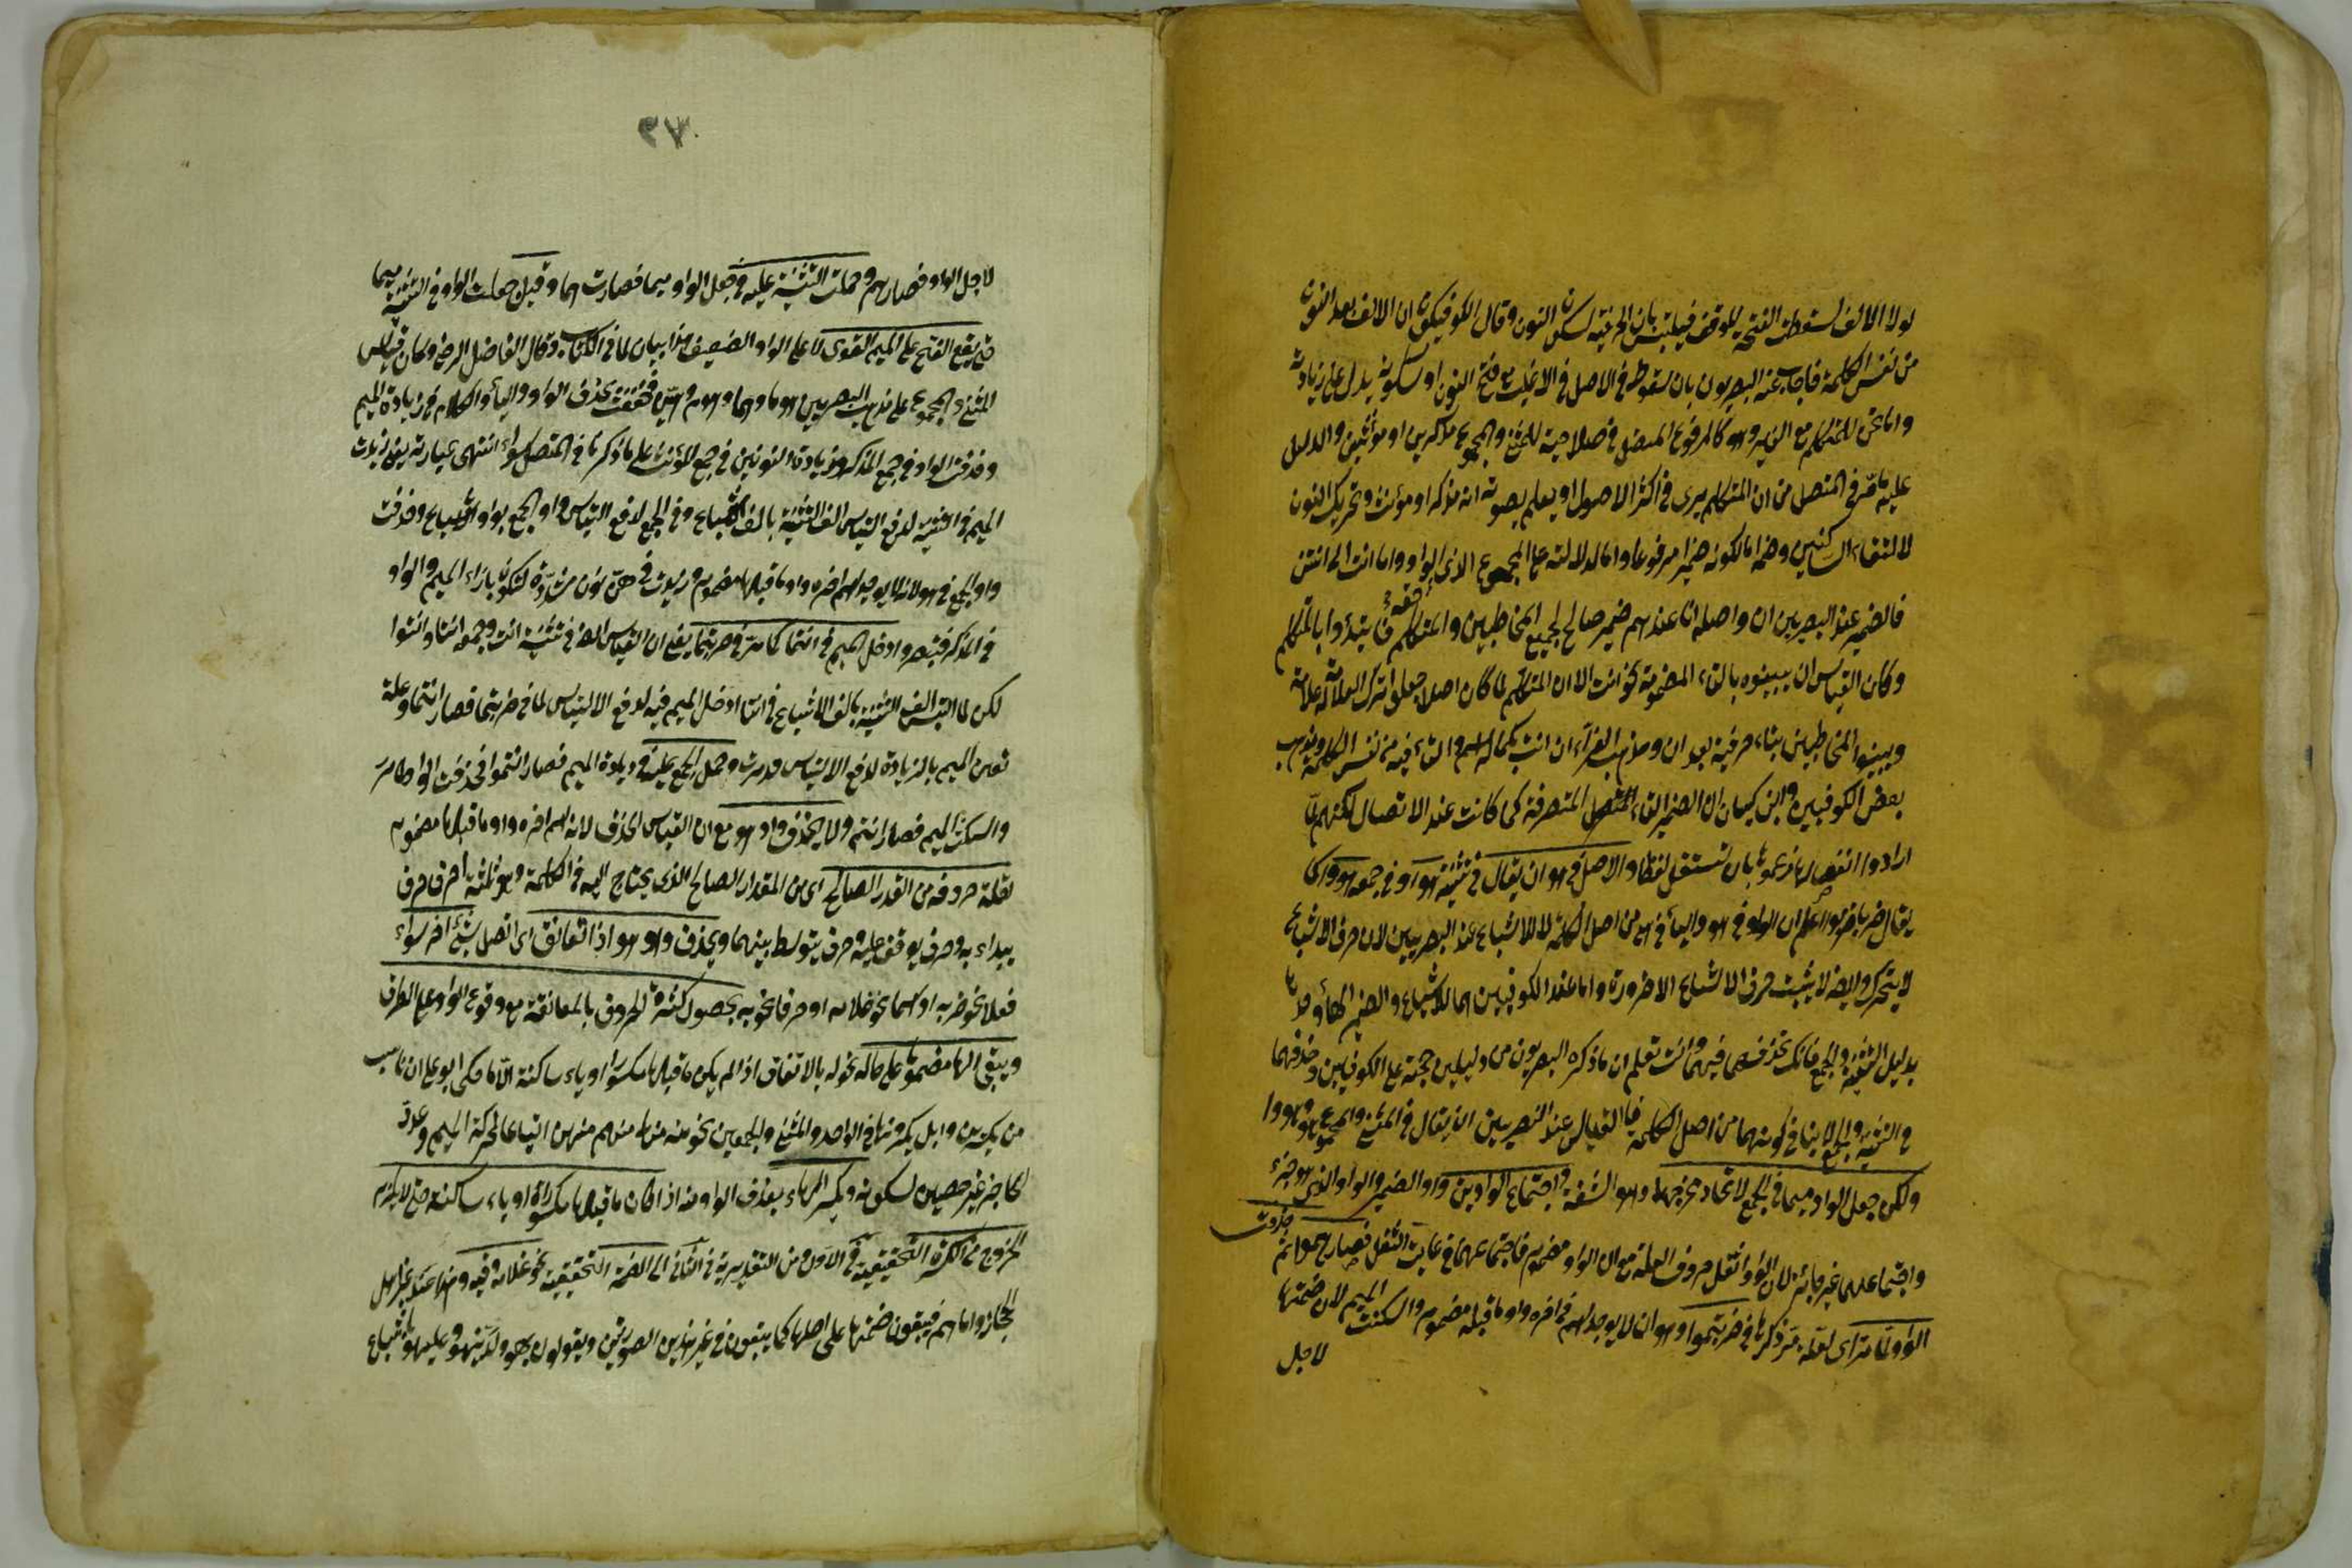 لولا الالف لسقطت الفتحة للوقف فيلتبس بان الحرفية لسكون النون وقال الكوفيون ان الالف بعد النون
من نفس الكلمة فاجاب عنه البصريون بان سقوطه في الاصل في الاغلب مع فتح النون او سكونه يدل على زيادته
واما نحن للمتكلم مع الغير وهو كالمرفوع المتصل في صلاحيته للمثنى والمجموع مذكرين او مؤنثين والدليل
عليه ما مر في المتصل من ان المتكلم يرى في اكثر الاصول او يعلم بصوته انه مذكر او مؤنث وتحريك النون
لالتقاء الساكنين وضمه اما لكونه ضميرا مرفوعا واما لدلالته على المجموع الذى الواو واما انت الى انتن
فالضمير عند البصريين ان واصله انا عندهم ضمير صالح لجميع المخاطبين والمتكلم فابتدأوا بالمتكلم
وكان القياس ان يبينوه بالتاء المضمومة نحو انت الا ان المتكلم لما كان اصلا جعلوا ترك العلامة له علامة
وبينوا المخاطبين بتاء حرفية بعد ان ومذهب الفراء ان انت بكماله اسم والتاء فيه من نفس الكلمة وذهب
بعض الكوفيين وابن كيسان ان الضمير التاء المتصل المتصرفة كما كانت عند الاتصال لكنهم لما
ارادوا انفصالها دعموها بان تستقل لفظا والاصل في هو ان يقال في تثنيته هواو وفي جمعه هووا كما
يقال ضربا ضربوا اعلم ان الواو في هو والياء في هي من اصل الكلمة لا للاشباع عند البصريين لان حرف الاشباع
لا يتحرك وايضا لا يثبت حرف الاشباع الا ضرورة واما عند الكوفيين هما للاشباع والضمير الهاء وحدها
بدليل التثنية والجمع فانك تحذفهما فيهما وانت تعلم ان ما ذكره البصريون من دليلين حجة على الكوفيين وحذفهما
في التثنية والجمع لا ينافي كونهما من اصل الكلمة فالقياس عند البصريين ان يقال في المثنى والمجموع هوا وهووا
ولكن جعل الواو ميما في الجمع لاتحاد مخرجهما وهو الشفة واجتماع الواوين واو الضمير والواو الذي هو جزء
واجتماعهما غير جائز لان الواو اثقل حروف العلة مع ان الواو مضموم فاجتماعهما في غاية الثقل فصار هموا ثم حذفت
الواو لما مر اى لعلة مر ذكرها في ضربتموا وهو ان لا يوجد اسم في اخره واو ما قبله مضموم واسكنت الميم لان ضمتها
لاجل
٣٧
لاجل الواو فصار هم وحملت التثنية عليه في جعل الواو ميما فصارت هما وقيل جعلت الواو في التثنية ميما
حتى يقع الفتح على الميم القوى لا على الواو الضعيف هذا بيان لما في الكتاب وقال الفاضل الرضى وكان قياس
المثنى والمجموع على مذهب البصريين هوما وهيما وهوم وهين فخففت بحذف الواو والياء والكلام في زيادة الميم
وحذفت الواو في جمع المذكر وزيادة النونين في جمع المؤنث على ما ذكرنا في المتصل سواء انتهى عبارته يعنى زيدت
الميم في التثنية لدفع التباس الف التثنية بالف الاشباع وفي الجمع لدفع التباس واو الجمع بواو الاشباع وحذفت
واو الجمع في هو لانه لا يوجد اسم اخره واو ما قبلها مضموم وزيدت في هن نون مشددة لتكون بازاء الميم والواو
في المذكر فتبصر وادخل الميم في انتما كما مر في ضربتما يعنى ان القياس ايضا في تثنية انت وجمعه انتا وانتوا
لكن لما التبس الف التثنية بالف الاشباع في انتا ادخل الميم فيه لدفع الالتباس لما في ضربتما فصار انتما وعلة
تعين الميم بالزيادة لدفع الالتباس قد مرت وحمل الجمع عليه في زيادة الميم فصار انتموا فحذفت الواو كما مر
واسكنت الميم فصار انتم ولا يحذف واو هو مع ان القياس الحذف لانه اسم اخره واو ما قبلها مضموم
لقلة حروفه من القدر الصالح اى من المقدار الصالح الذى يحتاج اليه في الكلمة وهو ثلثة احرف حرف
يبداء به وحرف يوقف عليه وحرف يتوسط بينهما ويحذف واو هو اذا تعانق اى اتصل بشئ اخر سواء
فعلا نحو ضربه او اسما نحو غلامه او حرفا نحو به بحصول كثرة الحروف بالمعانقة مع وقوع الواو على الطرف
ويبقى الهاء مضموما على حاله نحو له بالاتفاق اذا لم يكن ما قبلها مكسورا او ياء ساكنة الا ما حكى ابو على ان ناسا
من بكر بن وايل يكسرونها في الواحد والمثنى والجمعين نحو منه منهما منهم منهن اتباعا لحركة الميم وعدت
الحاجز غير حصين لسكونه وتكسر الهاء بعد حذف الواو منه اذا كان ما قبلها مكسورا او ياء ساكنة حتى لا يلزم
الخروج من الكسرة التحقيقية في الاول ومن التقديرية في الثانى الى الضمة التحقيقية نحو غلامه وفيه وهذا عند غير اهل
الحجاز واما هم فيبقون ضمتها على اصلها كما يبقون في غير هذين الصورتين ويقولون بهو ولديهو وعليهو باشباع